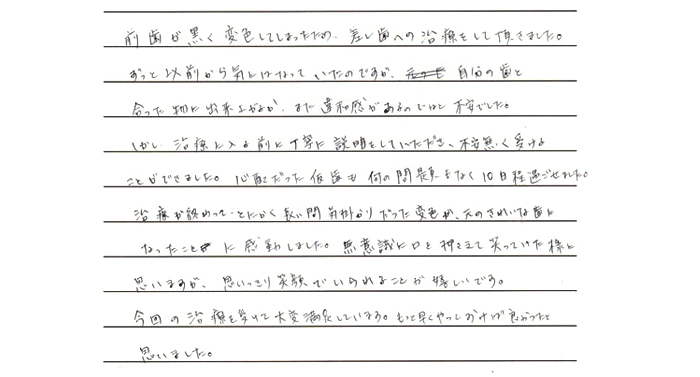 前歯が黒く変色してしまったため、差し歯への治療をして頂きました。
ずっと以前から気にはなっていたのですが、自分の歯と
合った物に出来上がるか、また違和感があるのではと不安でした。
しかし治療に入る前に丁寧に説明をしていただき、不安無く受ける
ことができました。心配だった仮歯も何の問題もなく10日程過ごせました。
治療が終わって、とにかく長い間気掛かりだった変色が、元のきれいな歯に
なったことに感動しました。無意識に口を押さえて笑っていた様に
思いますが、思いっきり笑顔でいられることが嬉しいです。
今回の治療を受けて大変満足しています。もっと早くやっておけば良かったと
思いました。